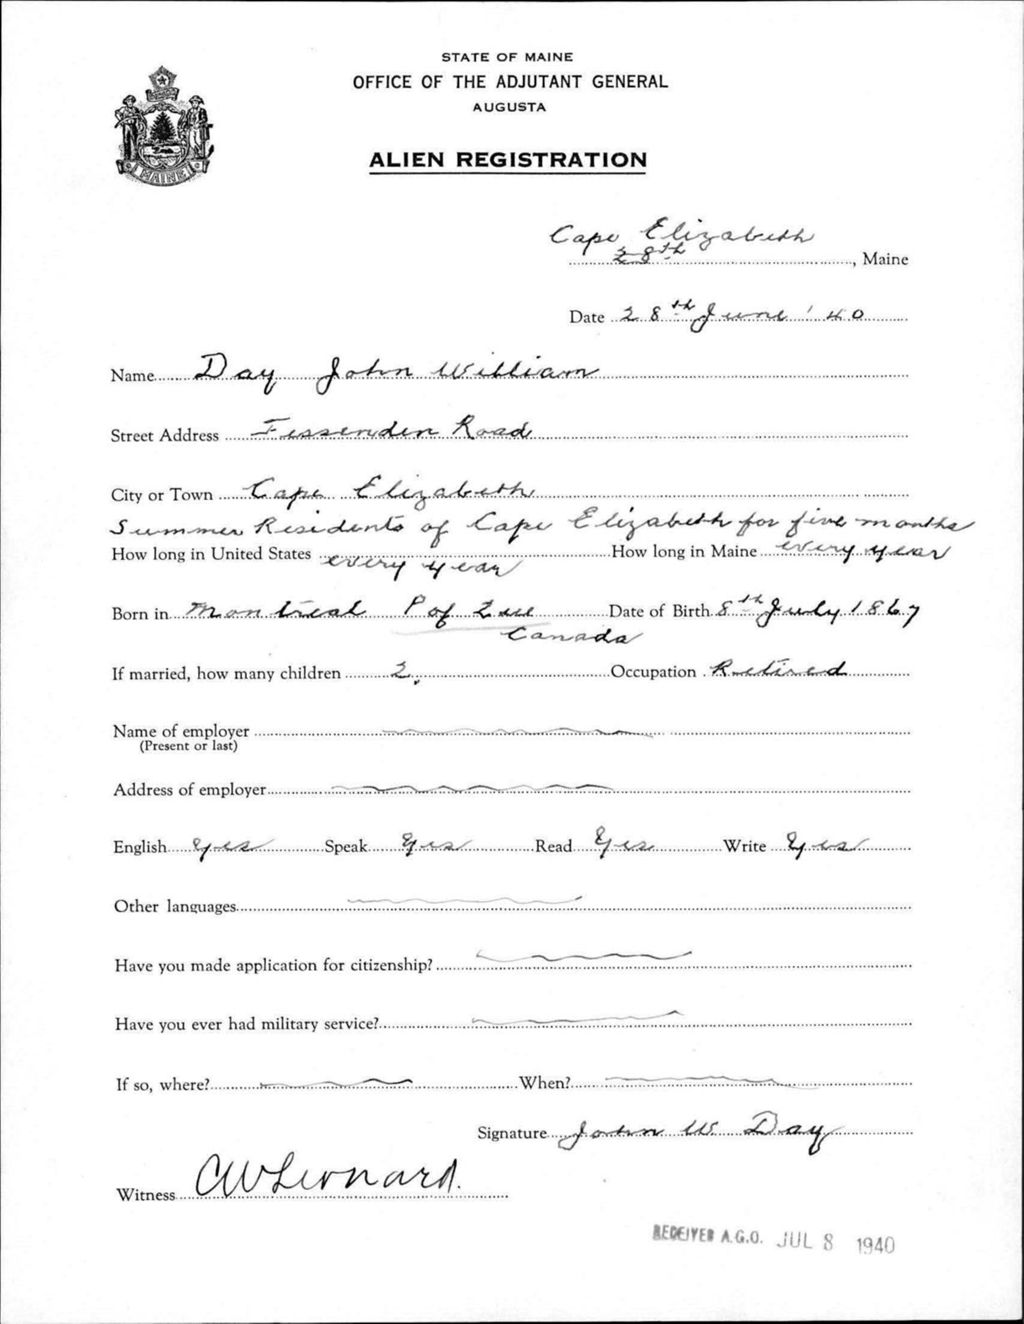 STATE OF MAINE
OFFICE OF THE ADJUTANT GENERAL
AUGUSTA
ALIEN REGISTRATION
MAINE
Cape Elizabeth
28th, Maine
Date 28th June '40
Name Day John William
Street Address Fessenden Road
City or Town Cape Elizabeth
Summer Residents of Cape Elizabeth for five months
How long in United States every year How long in Maine every year
Born in Montreal P of Que Date of Birth 8th July 1867
Canada
If married, how many children 2. Occupation Retired
Name of employer
(Present or last)
Address of employer
English Yes Speak Yes Read Yes Write Yes
Other languages
Have you made application for citizenship?
Have you ever had military service?
If so, where? When?
Signature John W. Day
Witness CW Leonard.
RECEIVED A.G.O. JUL 8 1940